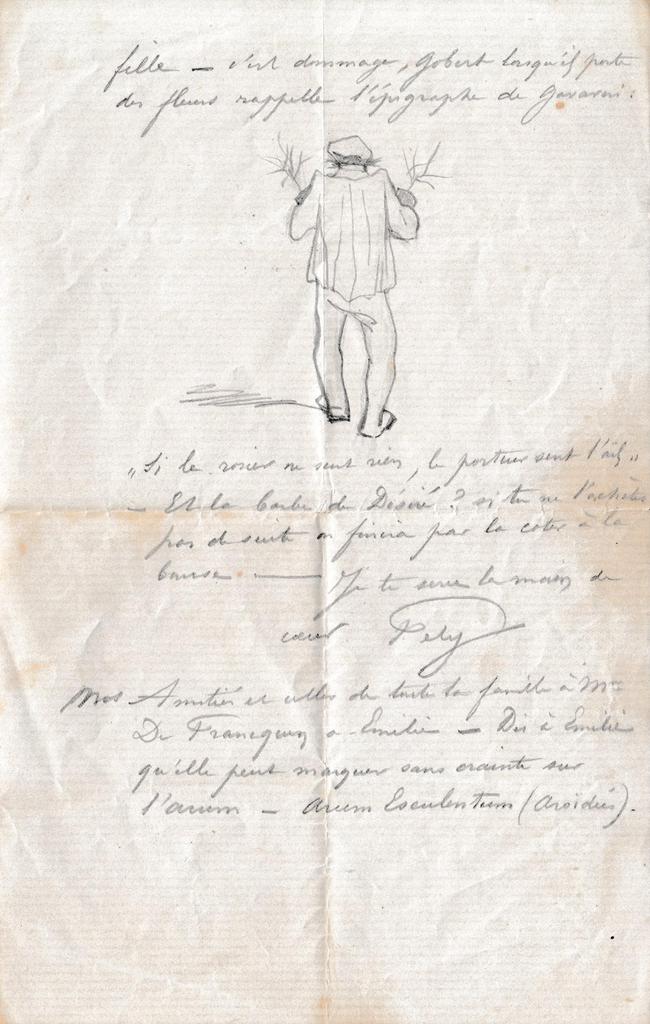 fille – c'est dommage, Gobert lorsqu'il porte
des fleurs rappelle l'épigraphe de Gavarni :
„Si le rosier ne sent rien, le porteur sent l'ail„
– Et la barbe de Désiré ? si tu ne l'achètes
pas de suite on finira par la coter à la
bourse — Je te serre la main de
cœur Pely
Mes Amitiés et celles de toute la famille à Mme
De Francquen a Emilie – Dis à Emilie
qu'elle peut marquer sans crainte sur
l'arum – Arum Esculentum (Aroidées).